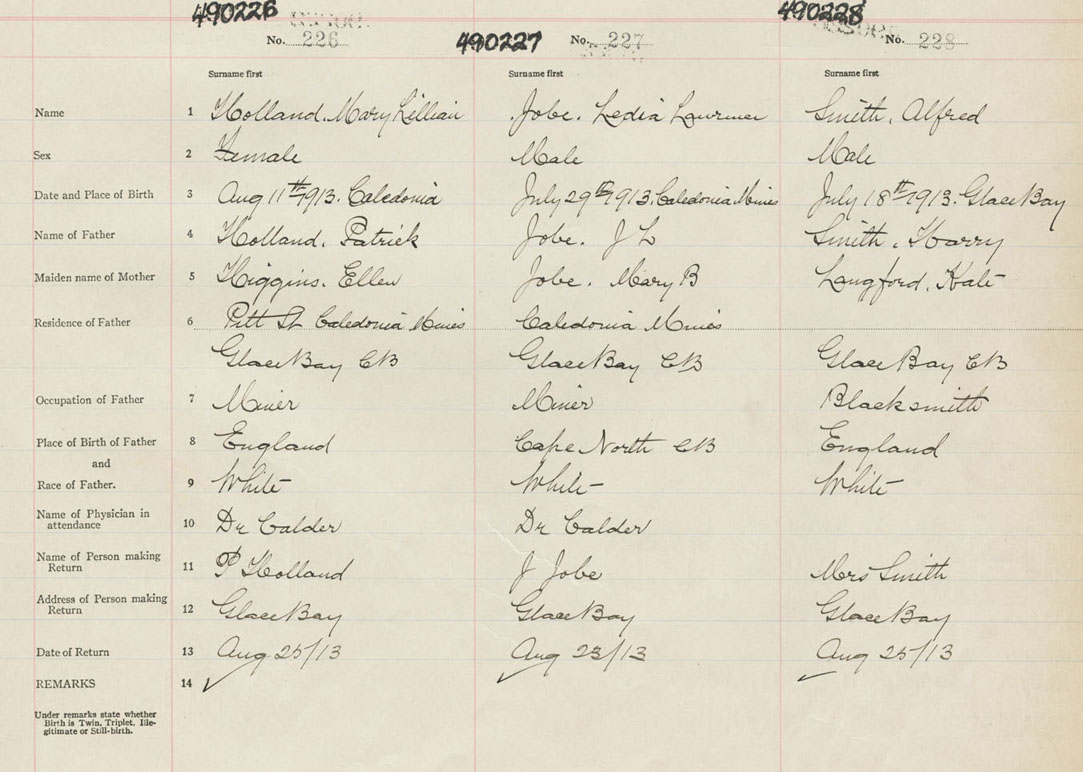 490226 490227 490228
No. 226 No. 227 No. 228
Surname first Surname first Surname first
Name 1 Holland. Mary Lillian Jobe. Ledia Lawrmer Smith, Alfred
Sex 2 Female Male Male
Date and Place of Birth 3 Aug 11th 1913. Caledonia July 29th 1913. Caledonia Mines July 18th 1913. Glace Bay
Name of Father 4 Holland. Patrick Jobe. J L Smith, Harry
Maiden name of Mother 5 Higgins. Ellen Jobe. Mary B Langford. Kate
Residence of Father 6 Pitt St Caledonia Mines Caledonia Mines
Glace Bay CB Glace Bay CB Glace Bay CB
Occupation of Father 7 Miner Miner Blacksmith
Place of Birth of Father 8 England Cape North CB England
and
Race of Father. 9 White White White
Name of Physician in
attendance 10 Dr Calder Dr Calder
Name of Person making
Return 11 P Holland J Jobe Mrs Smith
Address of Person making
Return 12 Glace Bay Glace Bay Glace Bay
Date of Return 13 Aug 25/13 Aug 23/13 Aug 25/13
REMARKS 14
Under remarks state whether
Birth is Twin, Triplet, Ille-
gitimate or Still-birth.